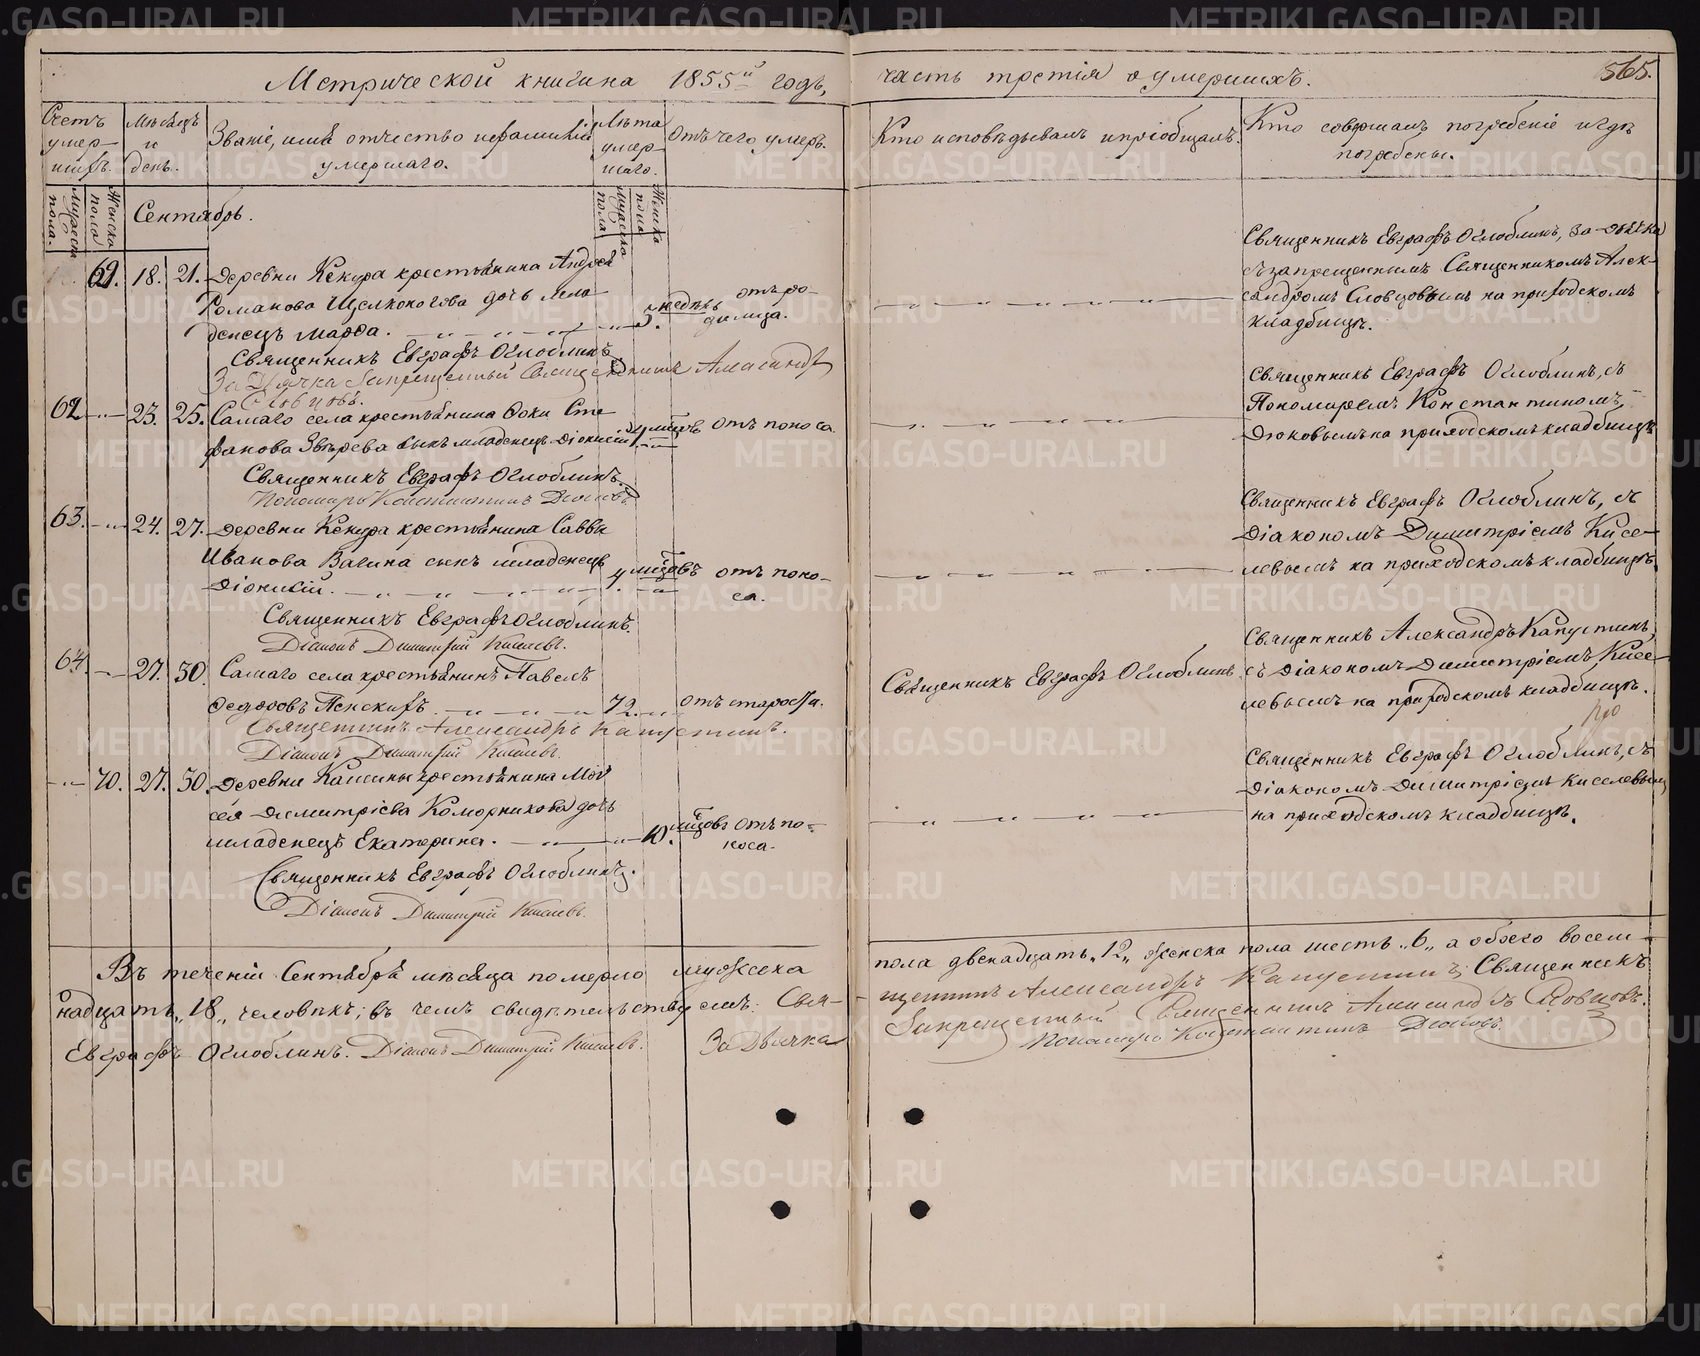 Метрической книги на 1855й годъ, часть третія о умершихъ.
565.
Счетъ умер-шихъ.
Мѣсяцъ и день.
Званіе, имя отчество и фамилія умершаго.
Лѣта умер-шаго.
Отъ чего умеръ.
Кто исповѣдывалъ и пріобщалъ.
Кто совершалъ погребеніе и гдѣ погребены.
Мужеска пола.
Женска пола
Мужеска пола
Женска пола
Сентябрь.
69. 18. 21. Деревни Кекура крестьянина Андрея
Романова Щелконогова дочь мла-
денецъ Марѳа. 3. недѣль отъ ро-
димца.
Священникъ Евграфъ Оглоблинъ, за дьячка
съ запрещеннымъ Священникомъ Алек-
сандромъ Словцовымъ на приходскомъ
кладбищѣ.
Священникъ Евграфъ Оглоблинъ
За Дьячка Запрещенный Священникъ Александръ
Словцовъ.
62. 23. 25. Самаго села крестьянина Фоки Сте-
фанова Звѣрева сынъ младенецъ Діонисій 4 мцовъ отъ поноса.
Священникъ Евграфъ Оглоблинъ, съ
Пономаремъ Константиномъ
Дюковымъ на приходскомъ кладбищѣ
Священникъ Евграфъ Оглоблинъ.
Пономарь Константинъ Дюковъ
63. 24. 27. Деревни Кекура крестьянина Саввы
Иванова Вагина сынъ младенецъ
Діонисій. 4 мцовъ отъ поно-
са.
Священникъ Евграфъ Оглоблинъ, съ
Діакономъ Димитріемъ Кисе-
левымъ на приходскомъ кладбищѣ.
Священникъ Евграфъ Оглоблинъ.
Діаконъ Димитрій Киселевъ.
64. 27. 30. Самаго села крестьянинъ Павелъ
Ѳедоровъ 72. отъ старости.
Священникъ Евграфъ Оглоблинъ.
Священникъ Александръ Капустинъ,
съ Діакономъ Димитріемъ Кисе-
левымъ на приходскомъ кладбищѣ.
Священникъ Александръ Капустинъ.
Діаконъ Димитрій Киселевъ.
70. 27. 30. Деревни крестьянина Мои-
сея Димитріева Коморникова дочь
младенецъ Екатерина. 10. мцовъ отъ по-
носа.
Священникъ Евграфъ Оглоблинъ, съ
Діакономъ Димитріемъ Киселевымъ
на приходскомъ кладбищѣ.
Священникъ Евграфъ Оглоблинъ.
Діаконъ Димитрій Киселевъ.
Въ теченіи Сентября мѣсяца померло мужеска пола двенадцать „12„ женска пола шесть „6„ а обоего восем-
надцать „18„ человѣкъ; въ чемъ свидѣтельствуемъ. Свя-щенникъ Александръ Капустинъ; Священникъ
Евграфъ Оглоблинъ. Діаконъ Димитрій Киселевъ. За Дьячка Запрещенный Священникъ Александръ Словцовъ.
Пономарь Константинъ Дюковъ.
METRIKI.GASO-URAL.RU